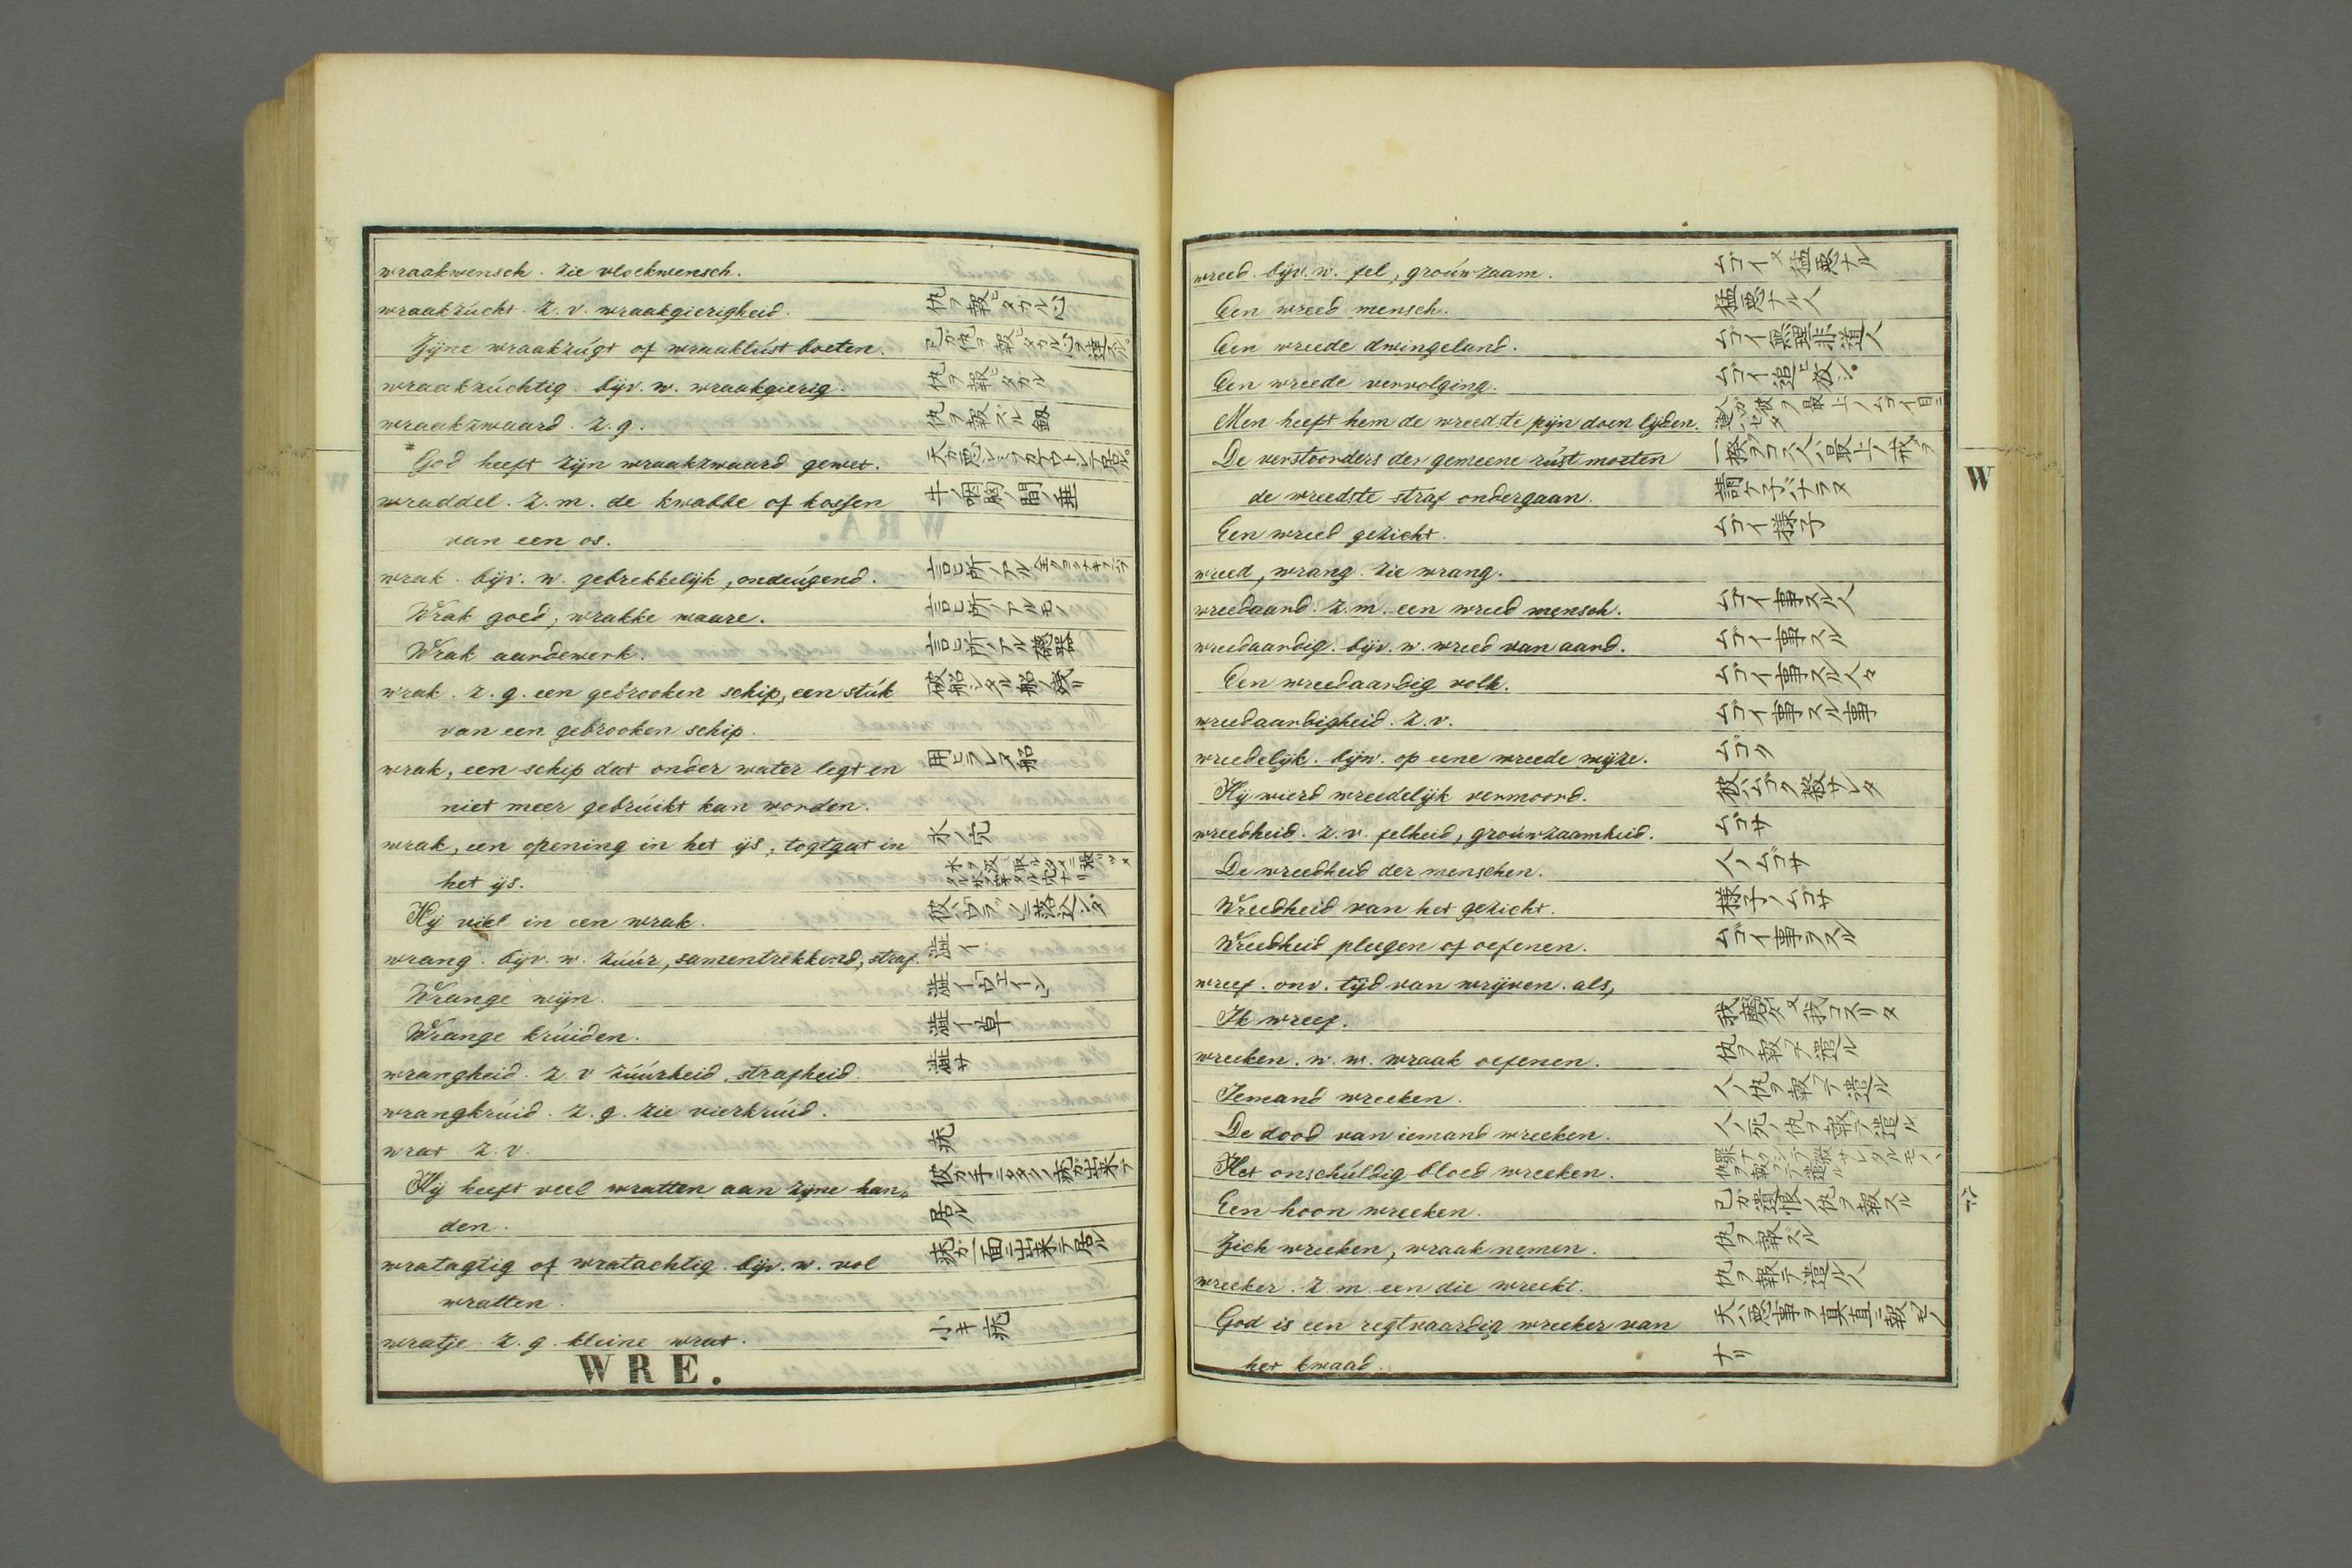 wraakwensch. zie vloekwensch.
wraakzúcht. z. v. wraakgierigheid. 仇ヲ報ヒタガル心
Zijne wraakzúgt of wraaklúst boeten. 己ガ仇ヲ報ヒタガル心ヲ達スル。
wraakzúchtig. bijv. w. wraakgierig. 仇ヲ報ヒタガル
wraakzwaard. z. g. 仇ヲ報ズル釼
*God heeft zijn wraakzwaard gewet.
wraddel. z. m. de kwabbe of kossen 牛ノ咽ト胸ノ間ノ垂
van een os.
wrak. bijv. w. gebrekkelijk, ondeúgend. 言ヒ所ノアル
Wrak goed, wrakke waare. 言ヒ所ノアルモノ
Wrak aardewerk. 言ヒ所ノアル磁器
wrak. z. g. een gebrooken schip, een stúk 破船シタル船ノ残リ
van een gebrooken schip.
wrak, een schip dat onder water legt en 用ヒラレヌ船
niet meer gebrúikt kan worden.
wrak, een opening in het ijs, togtgat in 氷ノ穴
het ijs.
Hij viel in een wrak. 彼ハ「ウラッ」ニ落込ンダ
wrang. bijv. w. zúúr, samentrekkend, straf. 澁イ
Wrange wijn. 澁イ「ウェイン」
Wrange krúiden. 澁イ草
wrangheid. z. v zúúrheid, strafheid. 澁サ
wrangkrúid. z. g. zie vierkrúid.
wrat z. v. 疣
Hij heeft veel wratten aan zijne han„ 彼ガ手ニタクサン疣ガ出来テ
den. 居ル
wratagtig of wratachtig. bijv. w. vol 疣ガ一面ニ出来テ居ル
wratten.
wratje. z. g. kleine wrat. 小キ疣
WRE.
wreed. bijv. w. fel, groúwzaam. ムゴイ又猛悪ナル
Een wreed mensch. 猛悪ナル人
Een wreede dwingeland. ムゴイ無理非道人
Een wreede vervolging. ムゴイ追ヒ放シ。
Men heeft hem de wreedste pijn doen lijden. 人ガ彼ヲ最上ノムゴイ目ニ逢ハセタ
De verstoorders der gemeene rúst moeten
de wreedste straf ondergaan. 請ケ子バナラヌ
Een wreed gezicht. ムゴイ様子
wreed, wrang. zie wrang.
wreedaard. z. m. een wreed mensch. ムゴイ事スル人
wreedaardig. bijv. w. wreed van aard. ムゴイ事スル
Een wreedaardig volk. ムゴイ事スル人々
wreedaardigheid. z. v. ムゴイ事スル事
wreedelijk. bijw. op eene wreede wijze. ムゴク
Hij wierd wreedelijk vermoord. 彼ハムゴク殺サレタ
wreedheid. z. v. felheid, groúwzaamheid. ムゴサ
De wreedheid der menschen. 人ノムゴサ
Wreedheid van het gezicht. 様子ノムゴサ
Wreedheid pleegen of oefenen. ムゴイ事ヲスル
wreef. onv. tijd van wrijven. als,
Ik wreef. 我磨タ又我コスリタ
wreeken. w. w. wraak oefenen. 仇ヲ報テ遣ル
Iemand wreeken. 人ノ仇ヲ報テ遣ル
De dood van iemand wreeken. 人ノ死ノ仇ヲ報テ遣ル
Het onschúldig bloed wreeken. 罪ナクシテ殺サレタルモノノ仇ヲ報テ遣ル
Een hoon wreeken. 己ガ遺恨ノ仇ヲ報スル
Zich wreeken, wraak nemen. 仇ヲ報ズル
wreeker. z. m. een die wreekt. 仇ヲ報テ遣ル人
God is een regtvaardig wreeker van 天ハ悪事ヲ真直ニ報ズモノ
het kwaad. ナリ
W